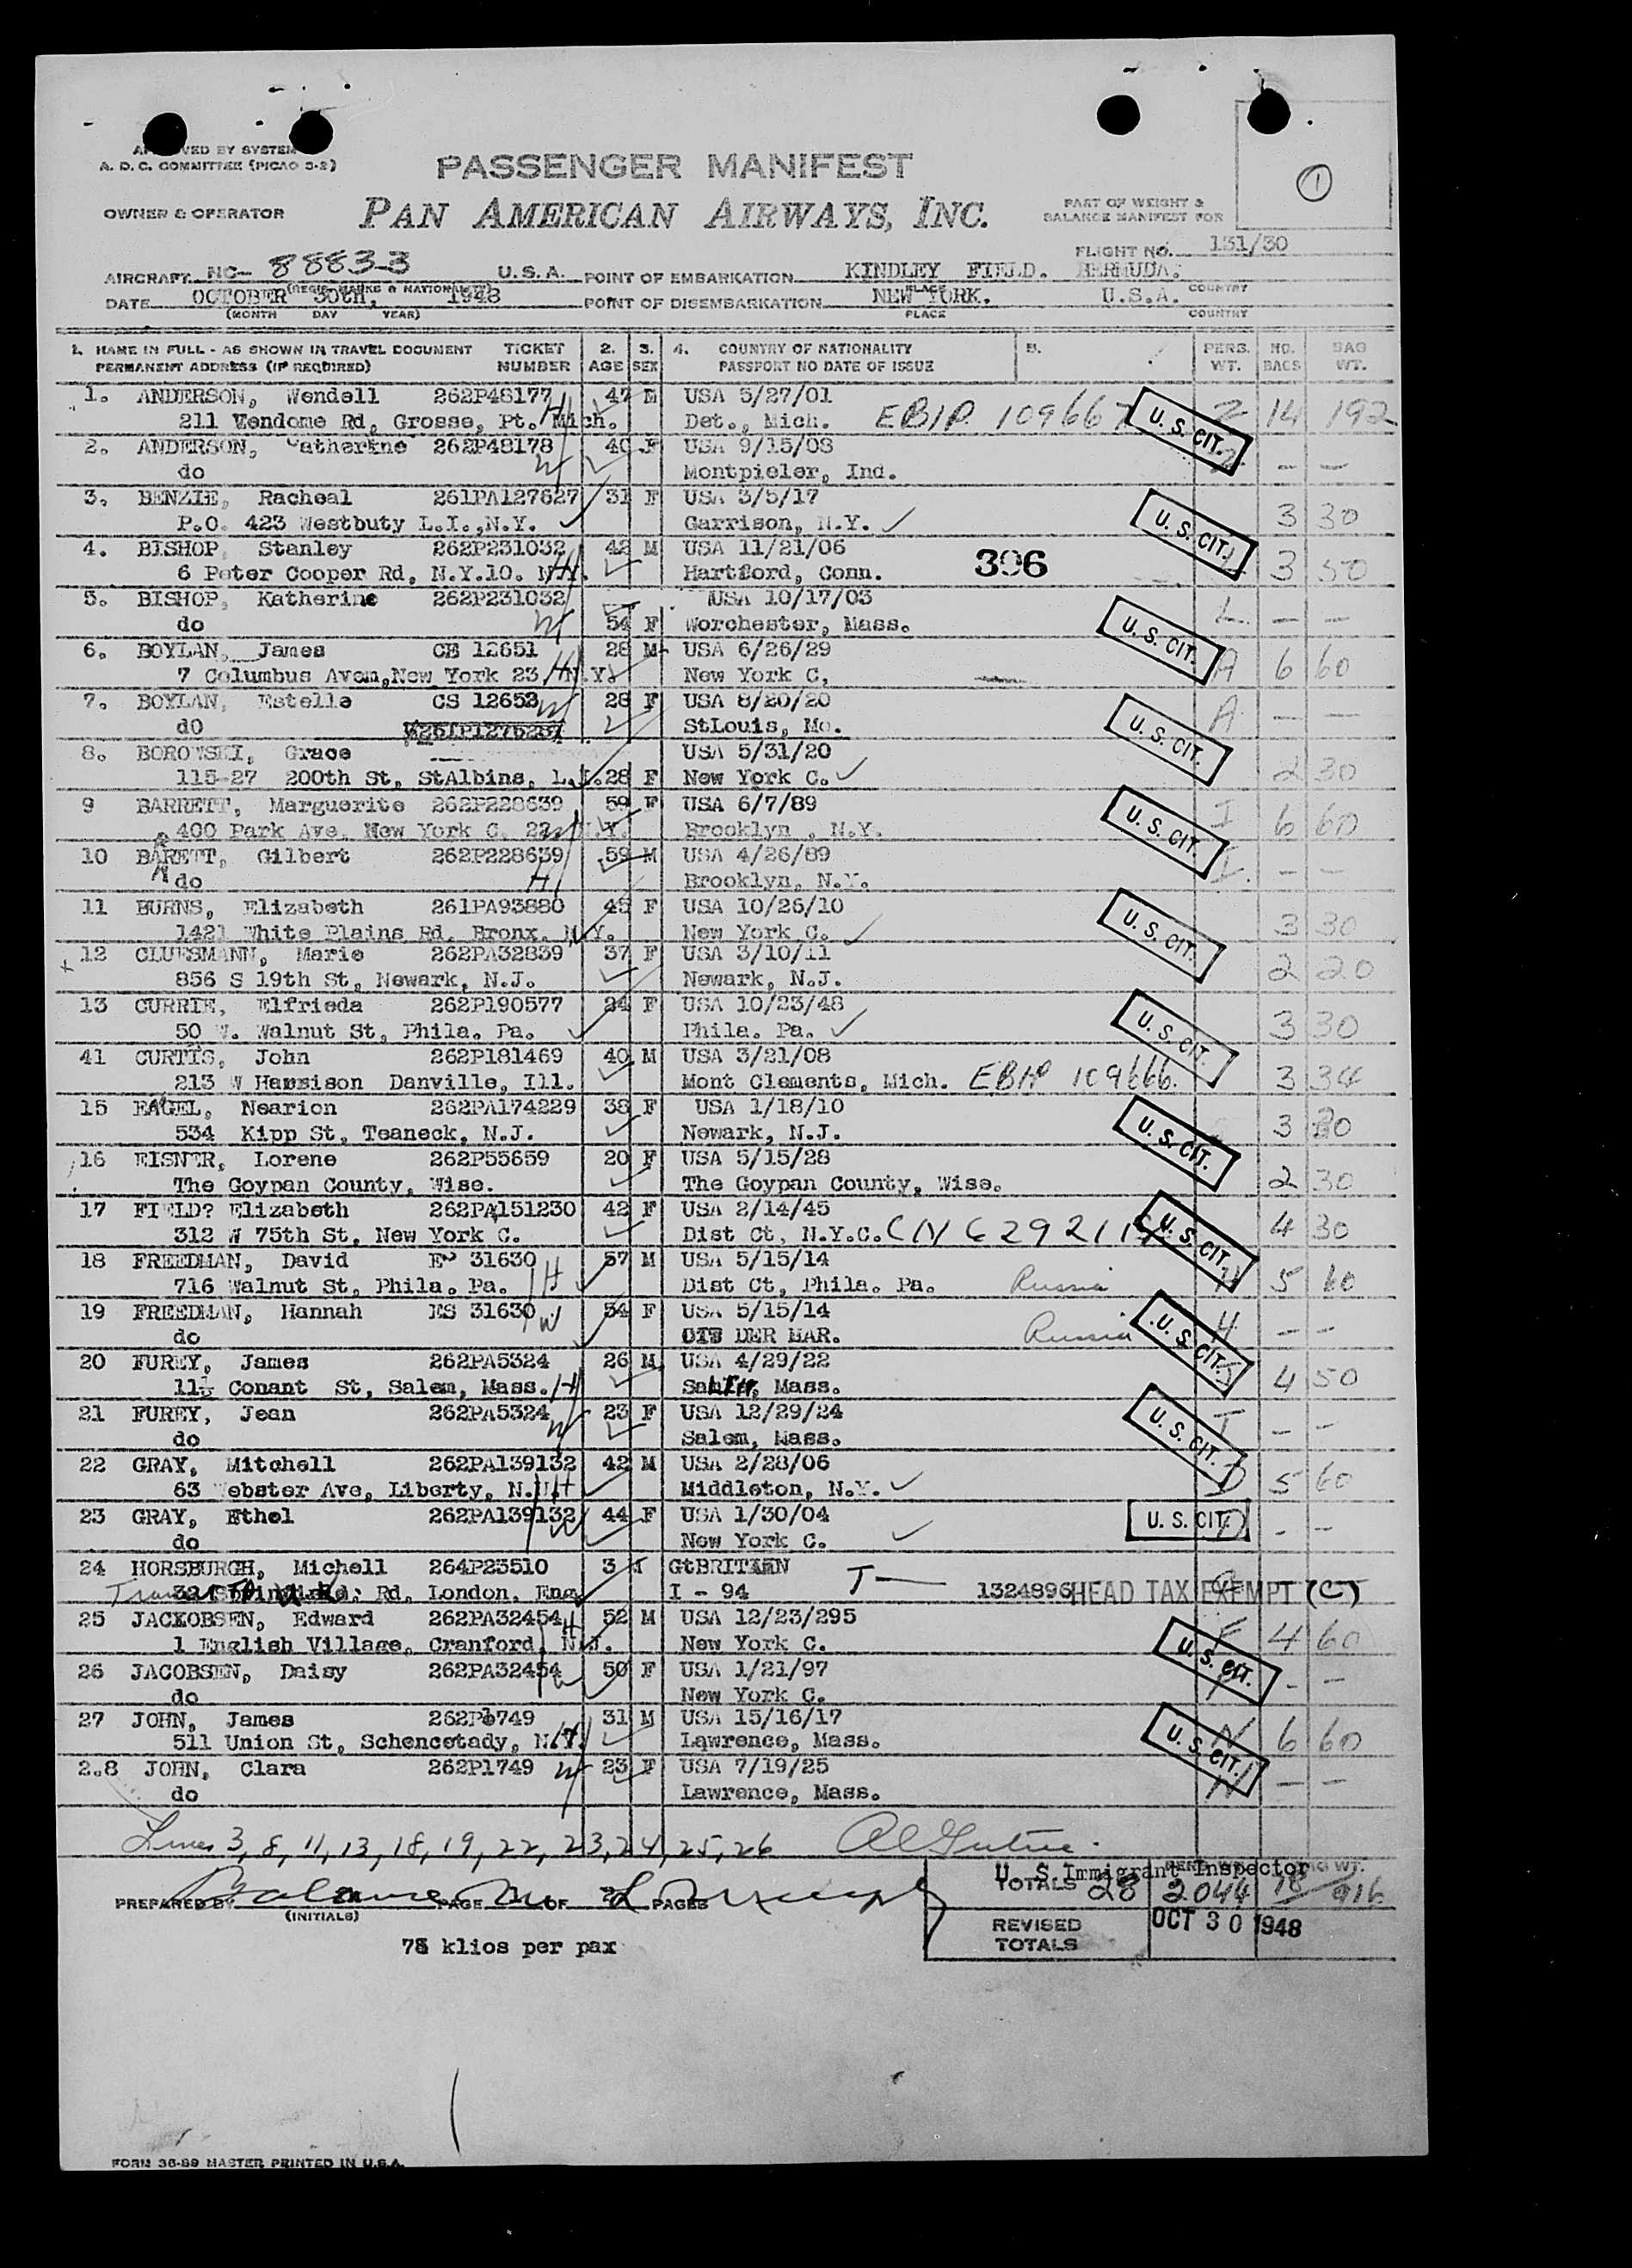 APPROVED BY SYSTEM
A. D. C. COMMITTEE (PICAO 3-2)
PASSENGER MANIFEST
OWNER & OPERATOR
PAN AMERICAN AIRWAYS, INC.
PART OF WEIGHT &
BALANCE MANIFEST FOR
1
FLIGHT NO. 131/30
AIRCRAFT NC- 88833 U.S.A. POINT OF EMBARKATION KINDLEY FIELD. BERMUDA.
(REGIS. MARKS & NATIONALITY) PLACE COUNTRY
DATE OCTOBER 30th, 1948 POINT OF DISEMBARKATION NEW YORK. U.S.A.
(MONTH DAY YEAR) PLACE COUNTRY
1. NAME IN FULL - AS SHOWN IN TRAVEL DOCUMENT TICKET 2. 3. 4. COUNTRY OF NATIONALITY 5. PERS. NO. BAG
PERMANENT ADDRESS (IF REQUIRED) NUMBER AGE SEX PASSPORT NO DATE OF ISSUE WT. BAGS WT.
1. ANDERSON, Wendell 262P48177 47 M USA 5/27/01
211 Vendome Rd, Grosse, Pt. Mich. H Det., Mich. EBIP 109667 U. S. CIT. Z 14 192
2. ANDERSON, Catherine 262P48178 40 F USA 9/15/08
do W Montpieler, Ind. Z — —
3. BENZIE, Racheal 261PA127627 31 F USA 3/5/17
P.O. 423 Westbuty L.I.,N.Y. Garrison, N.Y. U. S. CIT. 3 30
4. BISHOP, Stanley 262P231032 42 M USA 11/21/06 306
6 Peter Cooper Rd, N.Y.10. N.Y. H Hartford, Conn. L 3 50
5. BISHOP, Katherine 262P231032 USA 10/17/03
do W 54 F Worchester, Mass. U. S. CIT. L — —
6. BOYLAN, James CS 12651 28 M USA 6/26/29
7 Columbus Avem,New York 23, N.Y. H New York C, A 6 60
7. BOYLAN, Estelle CS 12652 W 28 F USA 8/20/20
dO StLouis, Mo. U. S. CIT. A — —
8. BOROWSKI, Grace USA 5/31/20
115-27 200th St, StAlbins, L.I. 28 F New York C. 2 30
9 BARRETT, Marguerite 262P228639 59 F USA 6/7/89
400 Park Ave. New York C. 22 N.Y. W Brooklyn , N.Y. U. S. CIT. I 6 60
10 BARETT, Gilbert 262P228639 59 M USA 4/26/89
R do H Brooklyn, N.Y. I — —
11 BURNS, Elizabeth 261PA93880 45 F USA 10/26/10
1421 White Plains Rd. Bronx. N.Y. New York C. U. S. CIT. 3 30
12 CLUESMANN, Marie 262PA32839 37 F USA 3/10/11
856 S 19th St, Newark, N.J. Newark, N.J. 2 20
13 CURRIE, Elfrieda 262P190577 24 F USA 10/23/48
50 W. Walnut St, Phila. Pa. Phila. Pa. U. S. CIT. 3 30
41 CURTIS, John 262P181469 40 M USA 3/21/08
213 W Hamsison Danville, Ill. Mont Clements, Mich. EBIP 109666. 3 34
15 EAGEL, Nearion 262PA174229 38 F USA 1/18/10
534 Kipp St, Teaneck, N.J. Newark, N.J. U. S. CIT. 3 30
16 EISNER, Lorene 262P55659 20 F USA 5/15/28
The Goypan County, Wise. The Goypan County, Wise. 2 30
17 FIELD? Elizabeth 262PA151230 42 F USA 2/14/45
312 W 75th St, New York C. Dist Ct, N.Y.C. U. S. CIT. 4 30
18 FREEDMAN, David 31630 57 M USA 5/15/14
716 Walnut St, Phila. Pa. H Dist Ct, Phila. Pa. Russia H 5 60
19 FREEDMAN, Hannah ES 31630 W 54 F USA 5/15/14
do DER MAR. Russia U. S. CIT. H — —
20 FUREY, James 262PA5324 26 M USA 4/29/22
Conant St, Salem, Mass. H Salem, Mass. J 4 50
21 FUREY, Jean 262PA5324 W 23 F USA 12/29/24
do Salem, Mass. U. S. CIT. — —
22 GRAY, Mitchell 262PA139132 42 M USA 2/28/06
63 Webster Ave, Liberty, N.Y. H Middleton, N.Y. D 5 60
23 GRAY, Ethel 262PA139132 W 44 F USA 1/30/04
do New York C. U. S. CIT. D — —
24 HORSBURGH, Michell 264P23510 3 GtBRITAEN
Rd, London, Eng I - 94 T— 1324896 HEAD TAX EXEMPT (C)
25 JACKOBSEN, Edward 262PA32454 H 52 M USA 12/23/295
1 English Village, Cranford, N.J. New York C. F 4 60
26 JACOBSEN, Daisy 262PA32454 W 50 F USA 1/21/97 U. S. CIT.
do New York C. F — —
27 JOHN, James 262P1749 31 M USA 15/16/17
511 Union St, Schencetady, N.Y. H Lawrence, Mass. N 6 60
2.8 JOHN, Clara 262P1749 W 23 F USA 7/19/25 U. S. CIT.
do Lawrence, Mass. N — —
Lines 3, 8, 11, 13, 18, 19, 22, 23, 24, 25, 26
U. S. Immigrant Inspector
TOTALS 28 2044 916
PREPARED BY PAGE OF PAGES
(INITIALS)
REVISED
TOTALS
OCT 30 1948
75 klios per pax
FORM 36-99 MASTER PRINTED IN U.S.A.